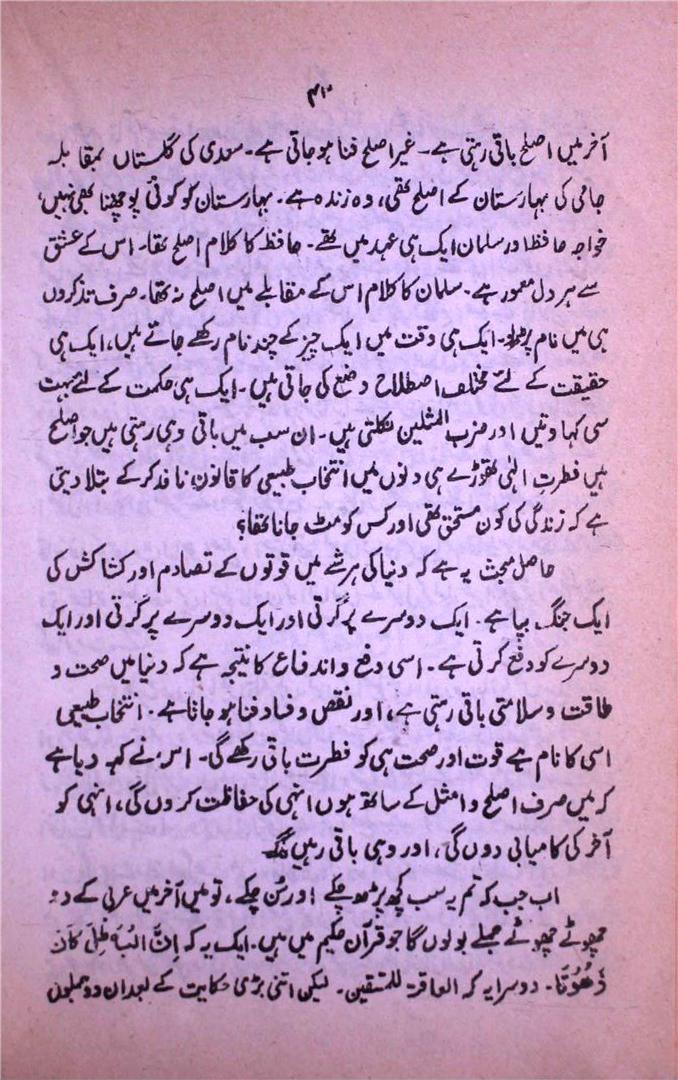 ۴۱۰
آخر میں اصلح باقی رہتی ہے۔ غیر اصلح فنا ہو جاتی ہے۔ سعدی کی گلستاں بمقابلہ
جامی کی بہارستان کے اصلح تھی، وہ زندہ ہے۔ بہارستان کو کوئی پوچھتا بھی نہیں،
خواجہ حافظ اور سلمان ایک ہی عہد میں تھے۔ حافظ کا کلام اصلح تھا۔ اس کے عشق
سے ہر دل معمور ہے۔ سلمان کا کلام اس کے مقابلے میں اصلح نہ تھا۔ صرف تذکروں
ہی میں نام پڑھ لو۔ ایک ہی وقت میں ایک چیز کے چند نام رکھے جاتے ہیں، ایک ہی
حقیقت کے لئے مختلف اصطلاح وضع کی جاتی ہیں۔ ایک ہی حکمت کے لئے بہت
سی کہاوتیں اور ضرب المثلیں نکلتی ہیں۔ ان سب میں باقی وہی رہتی ہیں جو اصلح
ہیں فطرتِ الٰہی تھوڑے ہی دنوں میں انتخاب طبیعی کا قانون نافذ کر کے بتلا دیتی
ہے کہ زندگی کی کون مستحق تھی اور کس کو مٹ جانا تھا؟
حاصل مبحث یہ ہے کہ دنیا کی ہر شے میں قوتوں کے تصادم اور کشاکش کی
ایک جنگ بپا ہے۔ ایک دوسرے پر گرتی اور ایک دوسرے پر گرتی اور ایک
دوسرے کو دفع کرتی ہے۔ اسی دفع و اندفاع کا نتیجہ ہے کہ دنیا میں صحت و
طاقت و سلامتی باقی رہتی ہے، اور نقص و فساد فنا ہو جاتا ہے۔ انتخاب طبیعی
اسی کا نام ہے قوت اور صحت ہی کو فطرت باقی رکھے گی۔ اس نے کہہ دیا ہے
کہ میں صرف اصلح و امثل کے ساتھ ہوں انہی کی حفاظت کروں گی، انہی کو
آخر کی کامیابی دوں گی، اور وہی باقی رہیں گے۔
اب جب کہ تم یہ سب کچھ پڑھ چکے اور سُن چکے، تو میں آخر میں عربی کے دو
چھوٹے چھوٹے جملے بولوں گا جو قرآن حکیم میں ہیں۔ ایک یہ کہ اِنَّ الْبَاطِلَ کَانَ
زَھُوْقًا۔ دوسرا یہ کہ العاقبۃ للمتقین۔ لیکن اتنی بڑی حکایت کے بعد ان دو جملوں